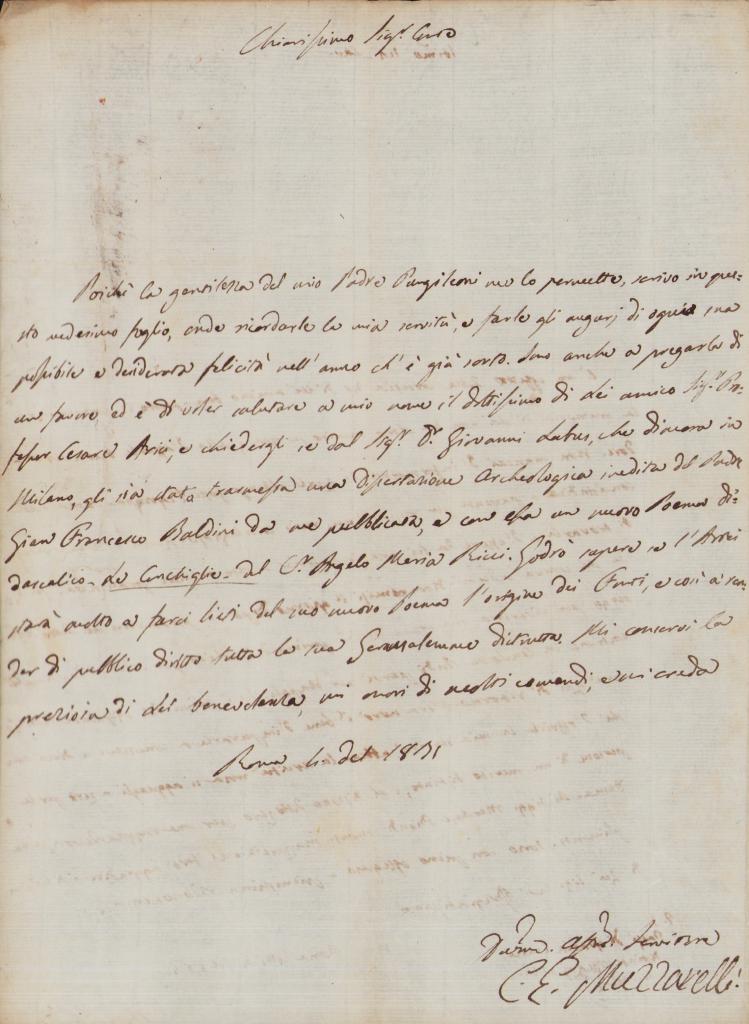 Chiarissimo Sigr. Conte
Poichè la gentilezza del mio Padre Pungileoni me lo permette, scrivo in que-
sto medesimo foglio, onde ricordarle la mia servitù, e farle gli augurj di ogni sua
possibile e desiderata felicità nell' anno ch' è già sorto. Sono anche a pregarla di
un favore, ed è di voler salutare a mio nome il dottissimo di Lei amico Sigr. Pro-
fessor Cesare Arici, e chiedergli se dal Sigr. Dr. Giovanni Labus, che dimora in
Milano, gli sia stata trasmessa una Dissertazione Archeologica inedita del Padre
Gian Francesco Baldini da me pubblicata, e con essa un nuovo Poema di-
dascalico - Le Conchiglie - del Cr. Angelo Maria Ricci. Godrò sapere se l' Arici
starà molto a farci lieti del suo nuovo Poema l' origine dei Fonti, e così a ren-
der di pubblico diritto tutta la sua Gerusalemme distrutta. Mi conservi la
preziosa di Lei benevolenza, mi onori di molti comandi, e mi creda
Roma del 1831
Servitore
C. E. Muzzarelli